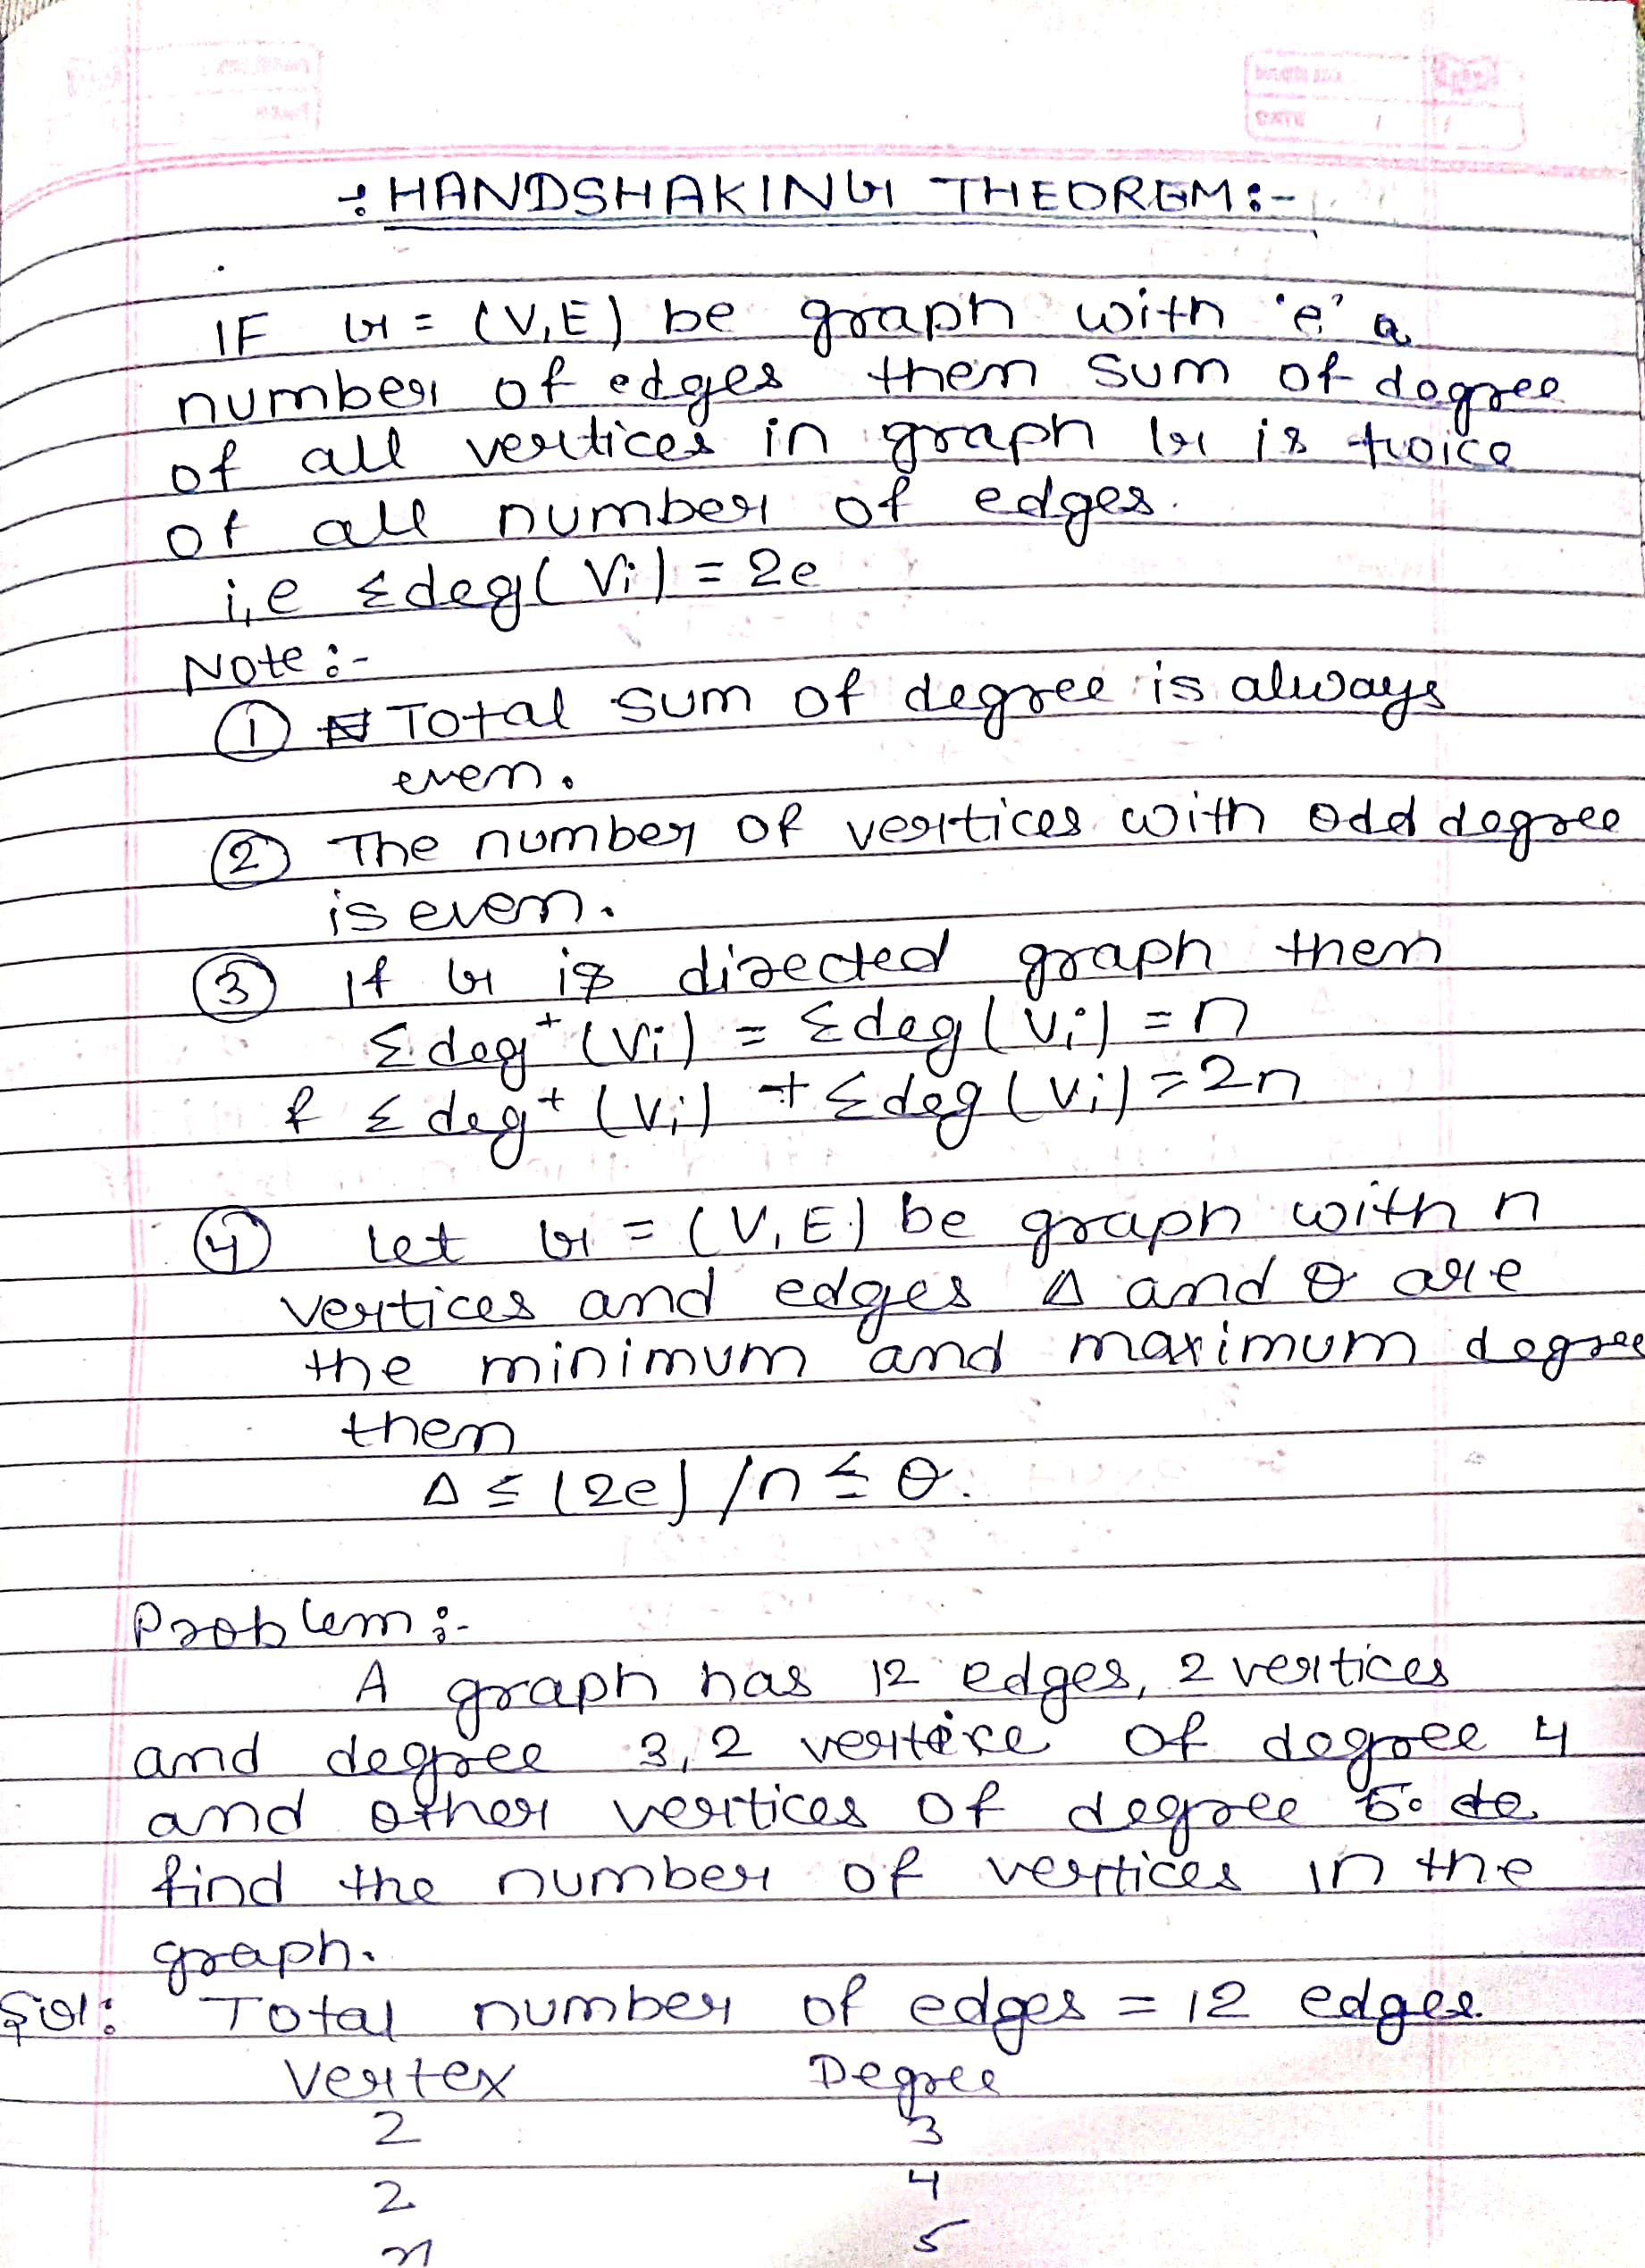 -: HANDSHAKING THEOREM :-
IF G = (V,E) be graph with 'e' a
number of edges then sum of degree
of all vertices in graph G is twice
of all number of edges.
i,e Σdeg(Vi) = 2e
Note :-
① Total sum of degree is always
even.
② The number of vertices with odd degree
is even.
③ If G is directed graph then
Σdeg⁺(Vi) = Σdeg(Vi) = n
f Σdeg⁺(Vi) + Σdeg(Vi) = 2n
④ Let G = (V,E) be graph with n
vertices and edges Δ and θ are
the minimum and maximum degree
then
Δ ≤ (2e)/n ≤ θ.
Problem :-
A graph has 12 edges, 2 vertices
and degree 3, 2 vertice of degree 4
and other vertices of degree 5.
find the number of vertices in the
graph.
Sol: Total number of edges = 12 edges.
Vertex Degree
2 3
2 4
n 5